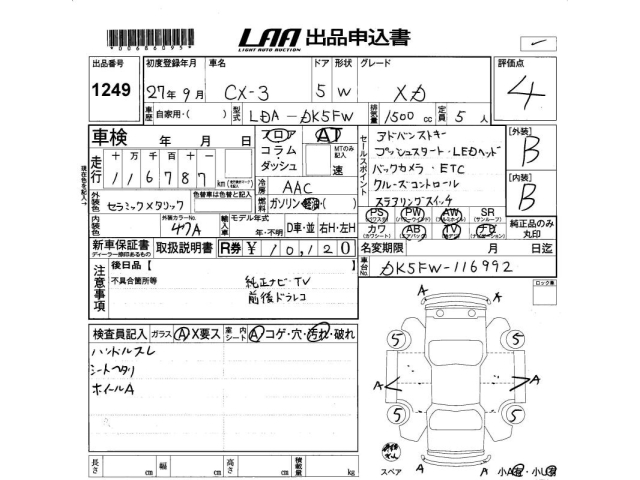 *00686095*
LAA 出品申込書
LIGHT AUTO AUCTION
出品番号 初度登録年月 車名 ドア 形状 グレード 評価点
1249 27年9月 CX-3 5 W XD 4
車歴 自家用・( ) 型式 LDA-DK5FW 排気量 1500cc 定員 5人
車検 年 月 日 フロア AT セールスポイント アドバンストキー [外装]
走行 十万千百十一 コラム・ MTのみ記入 プッシュスタート・LEDヘッド B
116787 km ダッシュ 速 バックカメラ・ETC [内装]
現在色を記入→ 外装色 色替車は色替と記入 冷房 AAC クルーズコントロール B
セラミックメタリック 燃料 ガソリン・軽油・( ) ステアリングスイッチ
内装色 外装カラーNo. 47A 輸入車 モデル年式 年・不明 D車・並 右H・左H
PS PW AW SR
(パワステ) (パワーウインド) (アルミホイル) (サンルーフ)
カワ AB TV ナビ 純正品のみ丸印
(カワシート) (エアバック) (テレビ) (ナビゲーション)
新車保証書 取扱説明書 R券 ¥10,120 名変期限 月 日迄
ディーラー捺印あるもの
注意事項 後日品【 】 車台No. DK5FW-116992
不具合箇所等 純正ナビ・TV ロック車
前後ドラレコ
検査員記入 ガラス A X要ス 室内シート A コゲ・穴・汚れ・破れ
ハンドルスレ
シートヘタリ
ホイールA
A A
5 5
A A
5 5
A A
スペア 小A有・小U有
長さ cm 幅 cm 高さ cm 積載量 kg